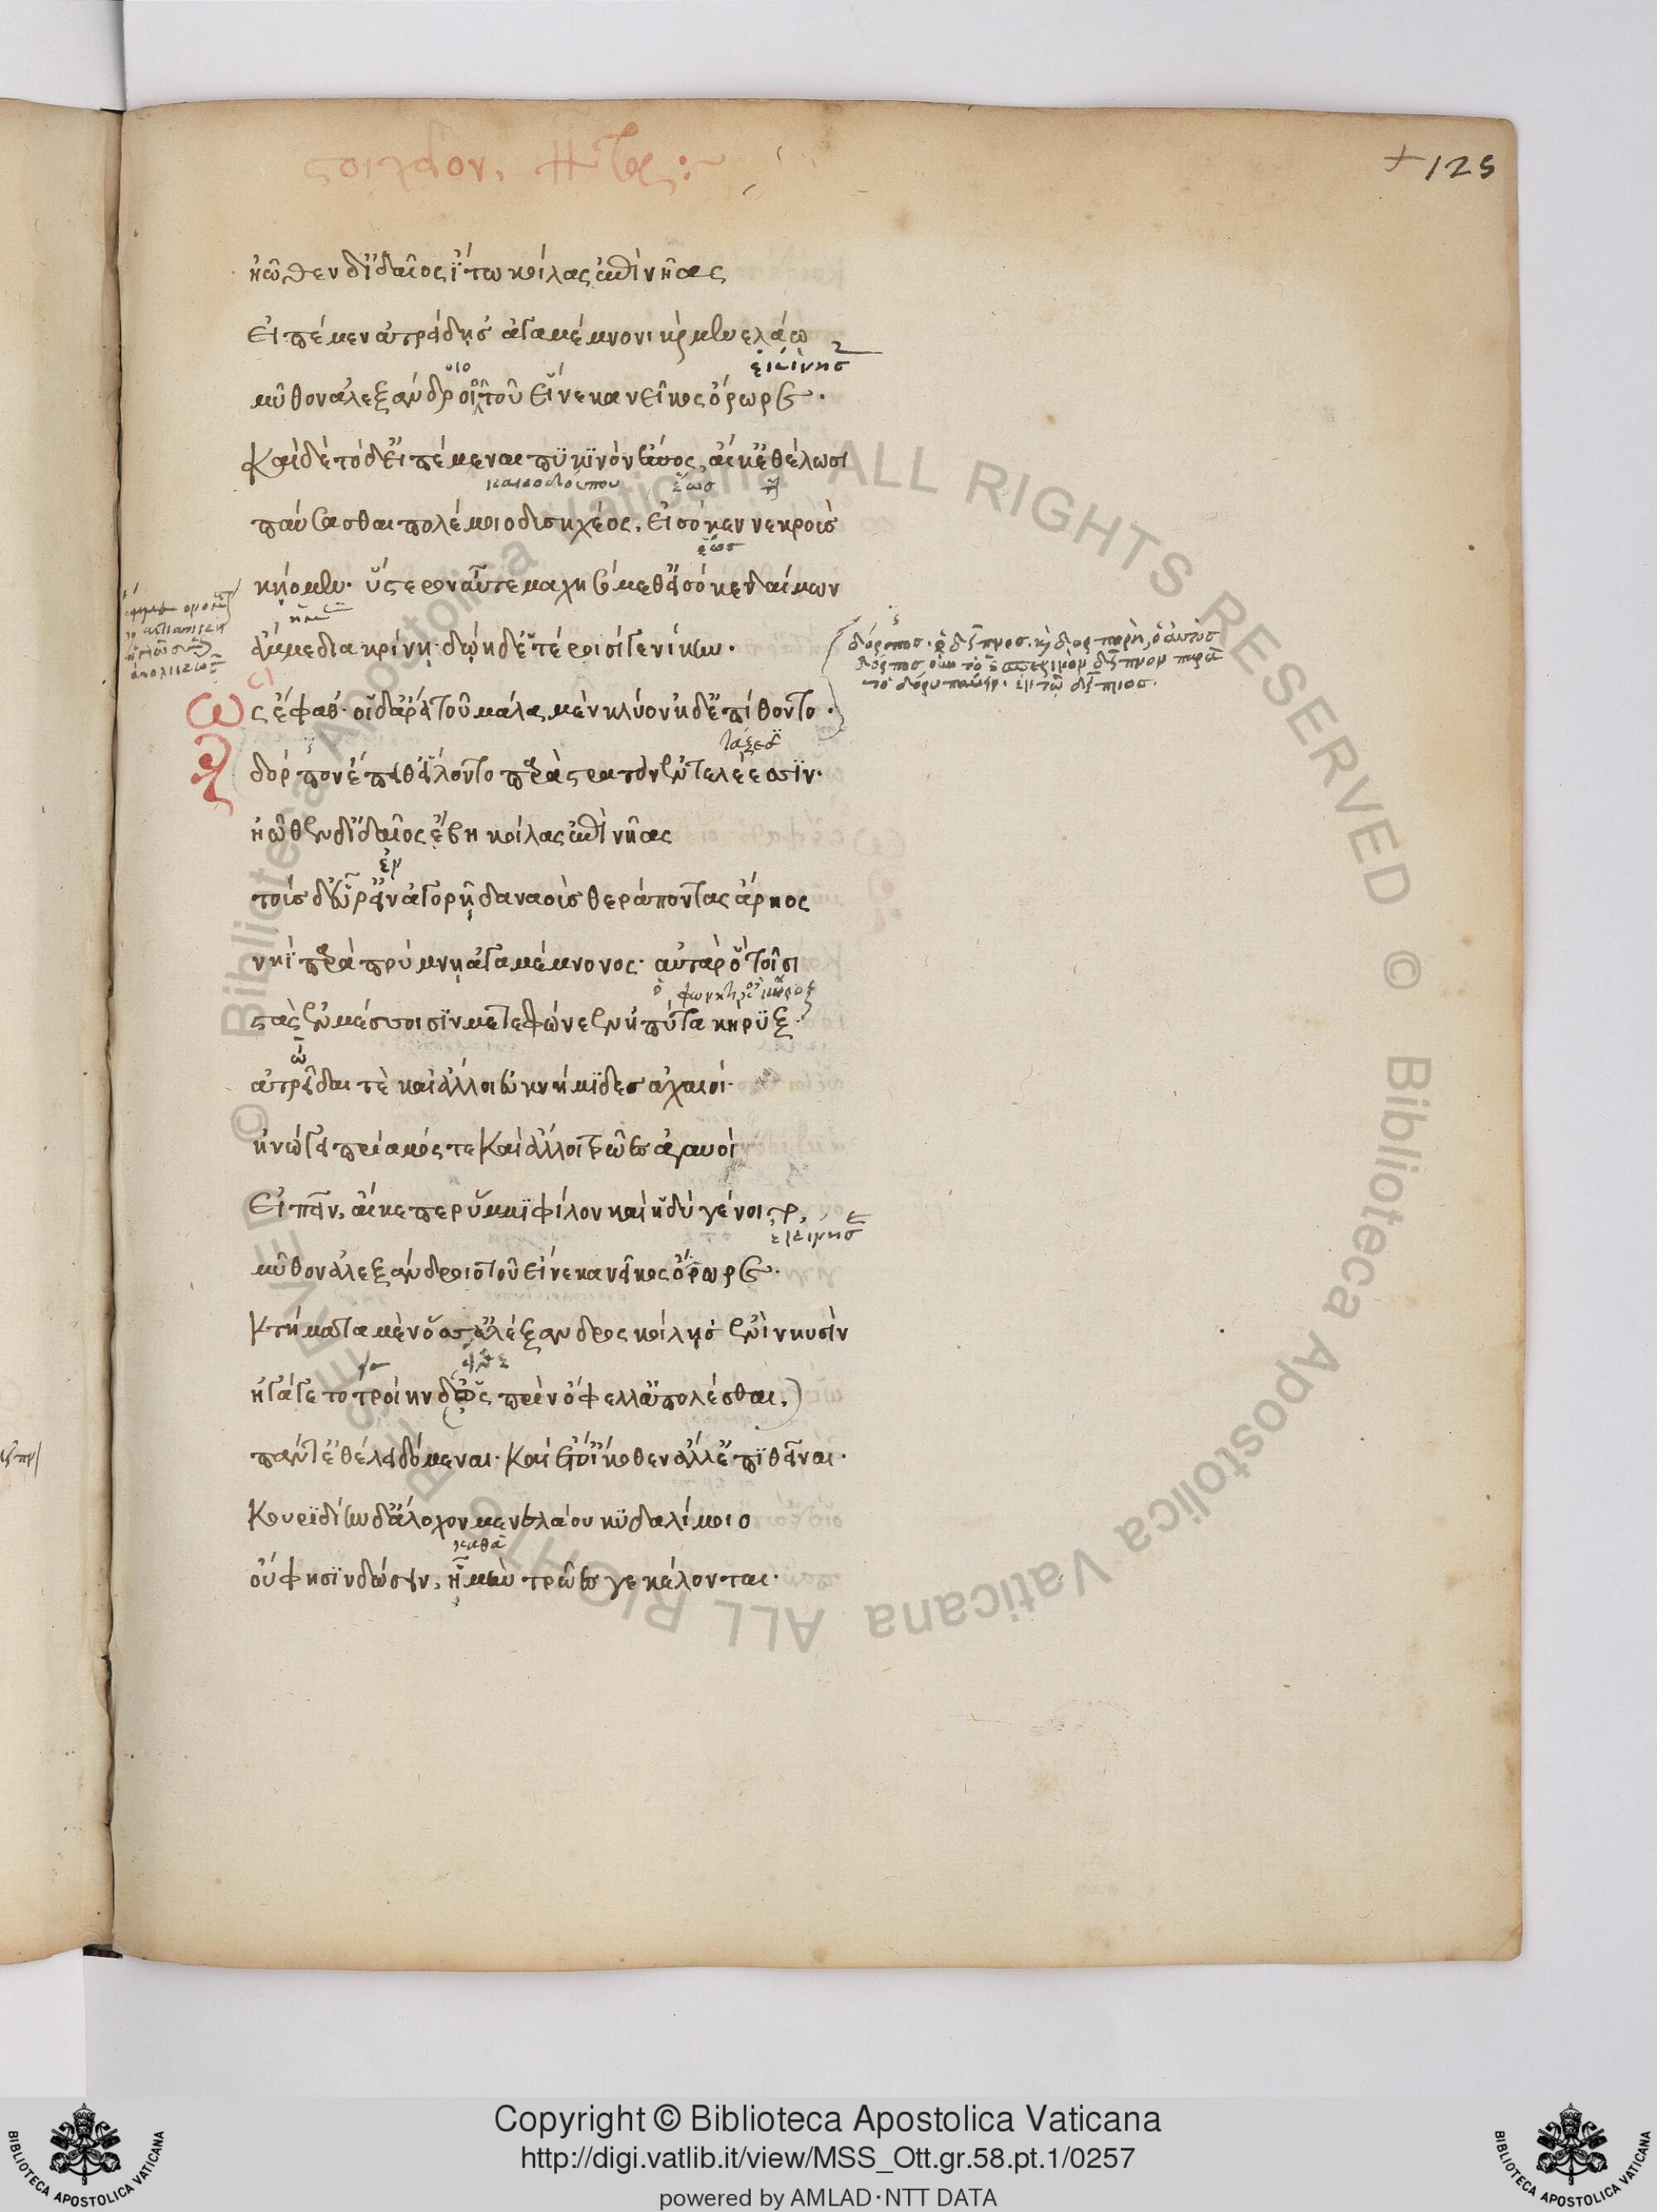 125
ἠῶθεν δ' ἰδαῖος ἴτω κοίλας ἐπὶ νῆας
εἰπέμεν ἀτρείδης ἀγαμέμνονι καὶ μενελάῳ
μῦθον ἀλεξάνδροιο τοῦ εἵνεκα νεῖκος ὄρωρεν·
καὶ δὲ τόδ' εἰπέμεναι πυκινὸν ἔπος, αἴκ' ἐθέλωσι
ἕως
παύσασθαι πολέμοιο δυσηχέος, εἰσόκεν νεκροὺς
ἕως
κήομεν· ὕστερον αὖτε μαχησόμεθ' εἰσόκε δαίμων
ἄμμε διακρίνῃ· δώῃ δ' ἑτέροισί γε νίκην·
ὣς ἔφαθ'· οἱ δ' ἄρα τοῦ μάλα μὲν κλύον ἠδ' ἐπίθοντο·
δόρπον ἔπειθ' εἵλοντο κατὰ στρατὸν ἐν τελέεσσιν·
ἠῶθεν δ' ἰδαῖος ἔβη κοίλας ἐπὶ νῆας
τοὺς δ' εὗρ' εἰν ἀγορῇ δαναοὺς θεράποντας ἄρηος
νηῒ παρὰ πρύμνῃ ἀγαμέμνονος· αὐτὰρ ὃ τοῖσι
στὰς ἐν μέσσοισιν μετεφώνεεν ἠπύτα κήρυξ·
ὦ
ἀτρεῖδαι τὲ καὶ ἄλλοι ἐϋκνήμιδες ἀχαιοί·
ἠνώγει πρίαμός τε καὶ ἄλλοι τρῶες ἀγαυοὶ
εἰπεῖν, αἴκε περ ὔμμι φίλον καὶ ἡδὺ γένοιτο,
μῦθον ἀλεξάνδροιο τοῦ εἵνεκα νεῖκος ὄρωρεν·
κτήματα μὲν ὅσ' ἀλέξανδρος κοίλῃς ἐνὶ νηυσὶν
ἠγάγετο τροίηνδ' ὡς πρὶν ὤφελλ' ἀπολέσθαι,
πάντ' ἐθέλει δόμεναι· καὶ ἔτ' οἴκοθεν ἄλλ' ἐπιθεῖναι·
κουριδίην δ' ἄλοχον μενελάου κυδαλίμοιο
οὔ φησιν δώσειν, ἦ μὴν τρῶές γε κέλονται·
© Biblioteca Apostolica Vaticana ALL RIGHTS RESERVED © Biblioteca Apostolica Vaticana ALL RIGHTS RESERVED
Copyright © Biblioteca Apostolica Vaticana
http://digi.vatlib.it/view/MSS_Ott.gr.58.pt.1/0257
powered by AMLAD·NTT DATA
BIBLIOTECA APOSTOLICA VATICANA
BIBLIOTECA APOSTOLICA VATICANA